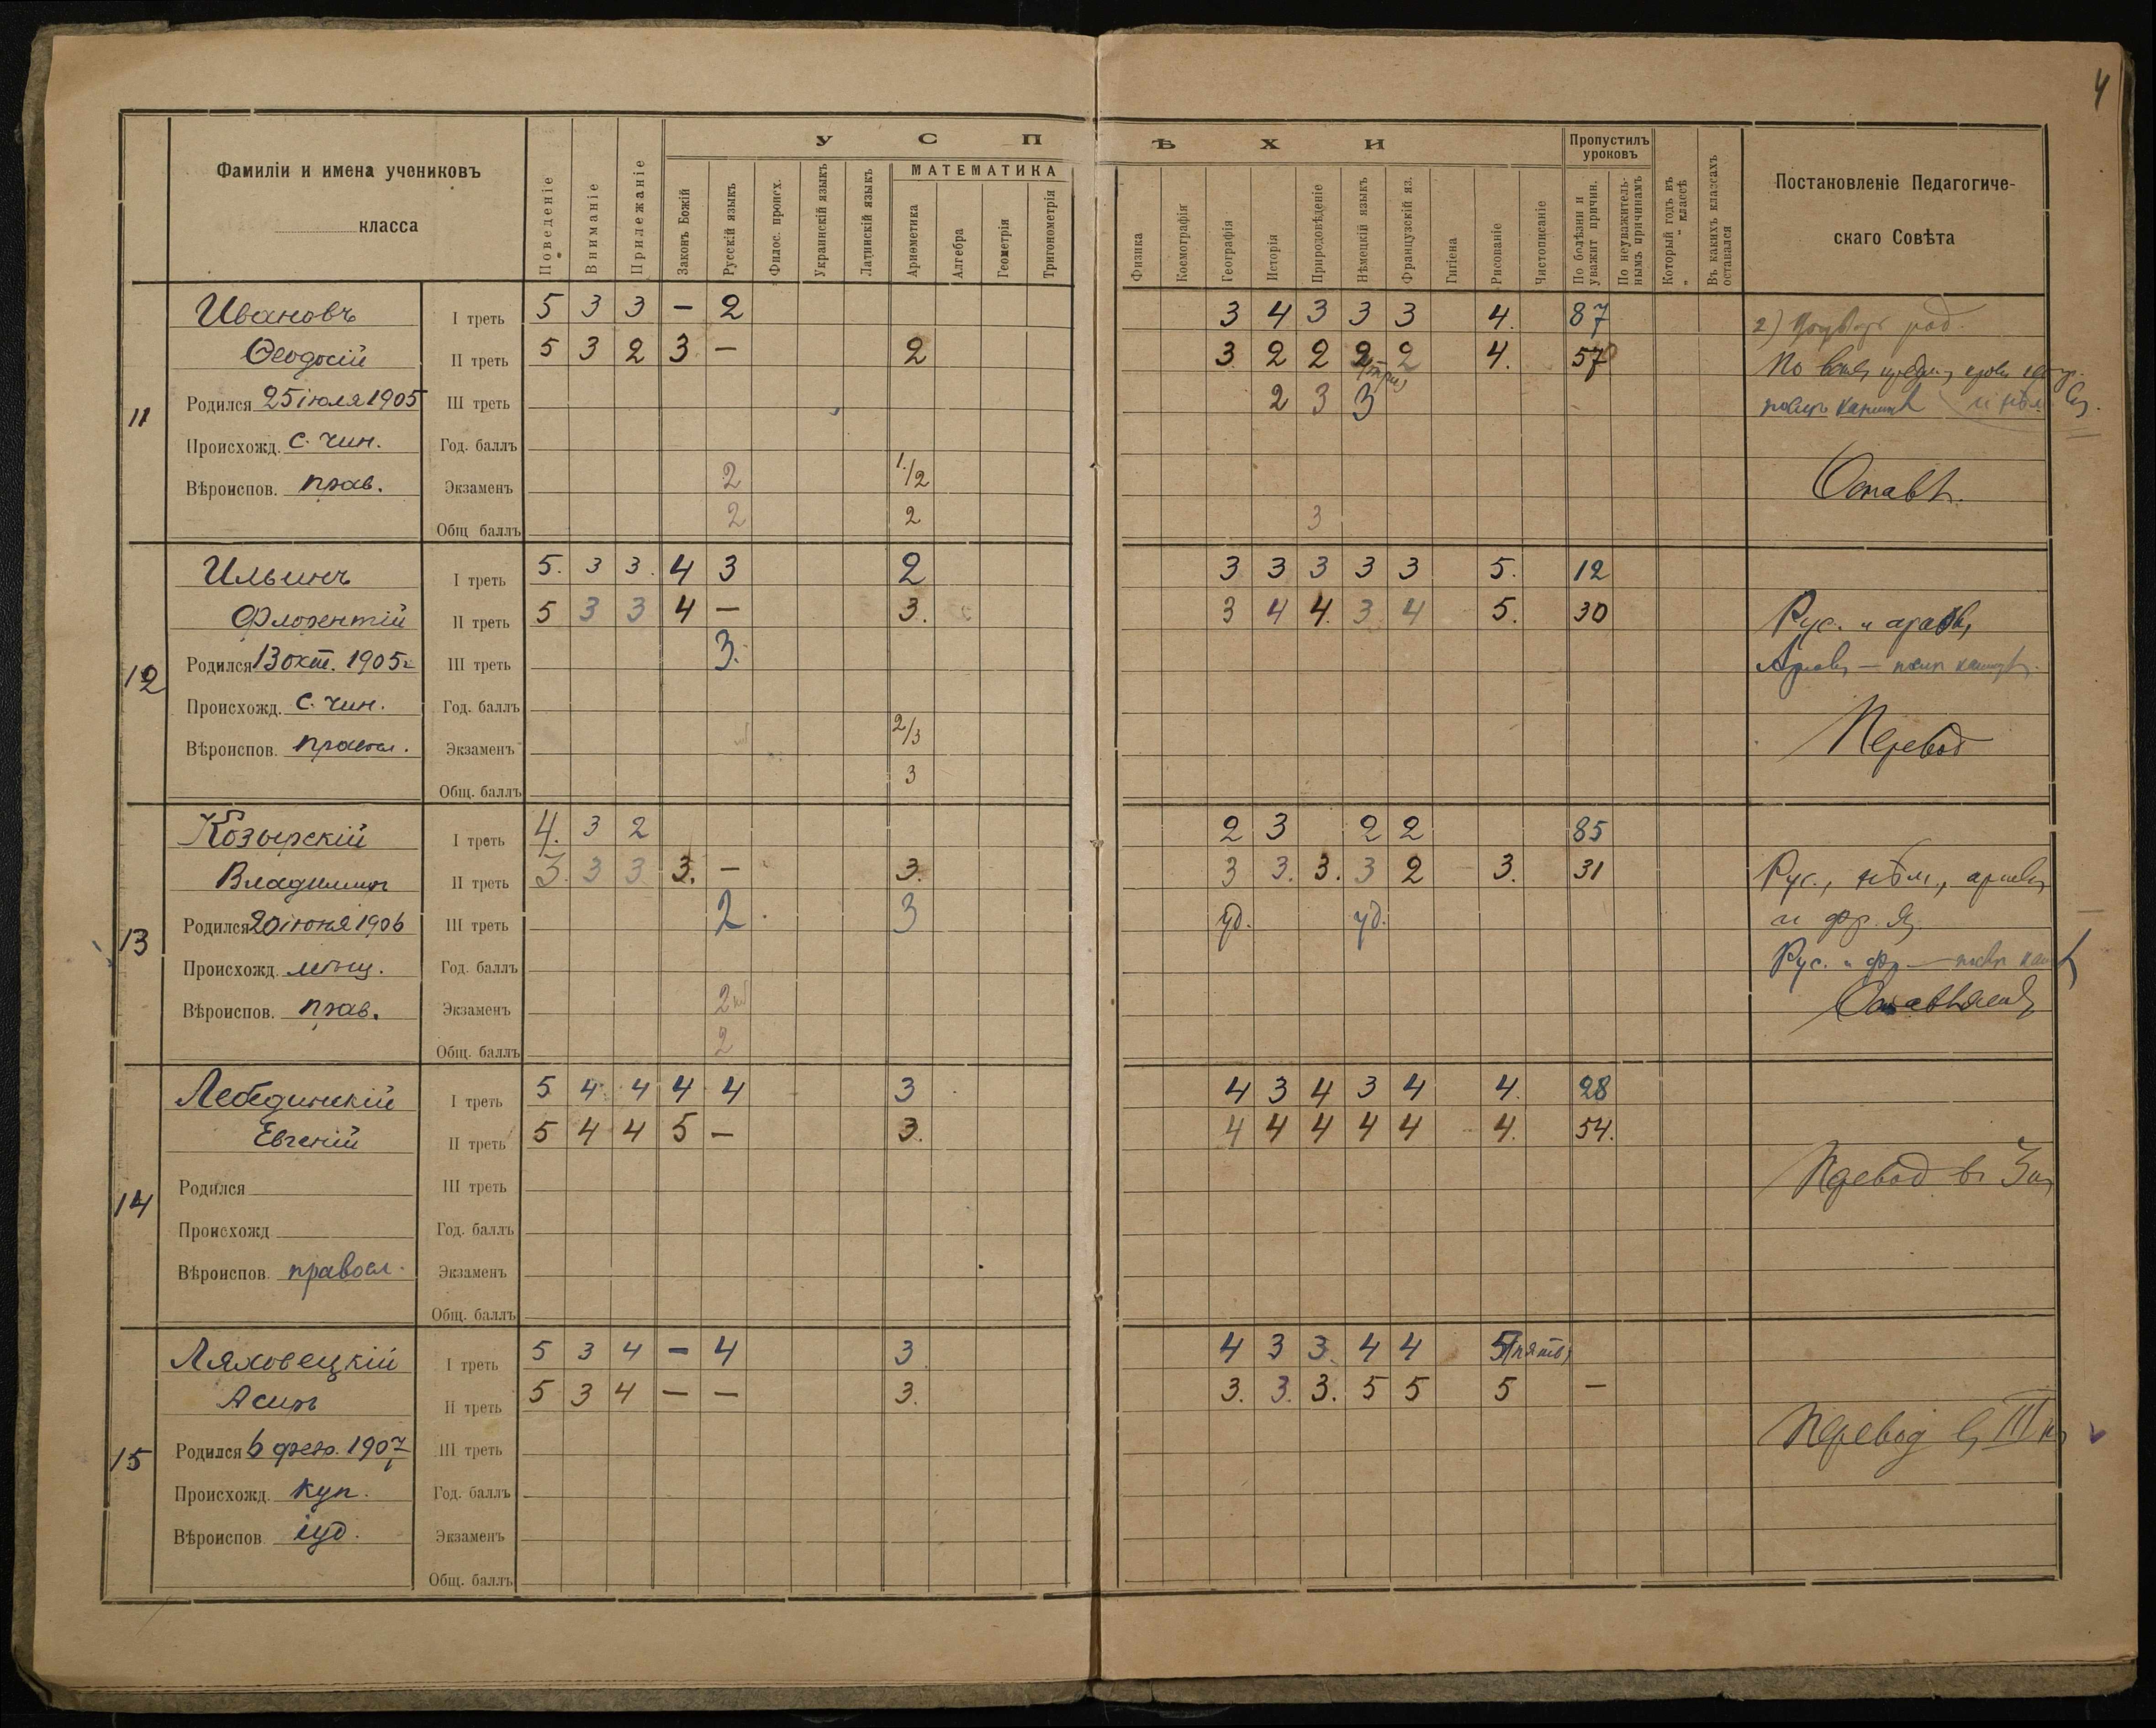 4
У С П Ѣ Х И
Фамиліи и имена учениковъ
класса
Поведеніе
Вниманіе
Прилежаніе
Законъ Божій
Русскій языкъ
Филос. происх.
Украинскій языкъ
Латинскій языкъ
МАТЕМАТИКА
Ариѳметика
Алгебра
Геометрія
Тригонометрія
Физика
Космографія
Географія
Исторія
Природовѣденіе
Нѣмецкій языкъ
Французскій яз.
Гигіена
Рисованіе
Чистописаніе
Пропустилъ
уроковъ
По болѣзни и
уважит причин.
По неуважитель-
нымъ причинамъ
Который годъ въ
„ „ классѣ
Въ какихъ классахъ
оставался
Постановленіе Педагогиче-
скаго Совѣта
11
Ивановъ
Ѳеодосій
Родился 25 іюля 1905
Происхожд. с. чин.
Вѣроиспов. прав.
I треть 5 3 3 — 2 3 4 3 3 3 4. 87
II треть 5 3 2 3 — 2 3 2 2 2 2 4. 57
III треть 2 3 3
Год. баллъ
Экзаменъ 2 1/2
Общ баллъ 2 2 3
Оставл.
12
Ильинъ
Флорентій
Родился 13 окт. 1905 г.
Происхожд. с. чин.
Вѣроиспов. правосл.
I треть 5. 3 3. 4 3 2 3 3 3 3 3 5. 12
II треть 5 3 3 4 — 3. 3 4 4. 3 4 5. 30
III треть 3.
Год. баллъ
Экзаменъ 2/3
Общ. баллъ 3
Рус. и
Перевод
13
Козырскій
Владимиръ
Родился 20 іюня 1906
Происхожд. мѣщ.
Вѣроиспов. прав.
I треть 4. 3 2 2 3 2 2 85
II треть 3. 3 3 3. — 3. 3 3. 3. 3 2 3. 31
III треть 2 3 уд. уд.
Год. баллъ
Экзаменъ 2
Общ. баллъ 2
Рус., нѣм.,
и фр. яз.
Рус. и фр. —
14
Лебединскій
Евгеній
Родился
Происхожд
Вѣроиспов. правосл.
I треть 5 4 4 4 4 3 4 3 4 3 4 4. 28
II треть 5 4 4 5 — 3. 4 4 4 4 4 4. 54.
III треть
Год. баллъ
Экзаменъ
Общ. баллъ
Перевод в 3
15
Ляховецкій
Асиръ
Родился 6 февр. 1907
Происхожд. куп.
Вѣроиспов. іуд.
I треть 5 3 4 — 4 3. 4 3 3. 4 4 5 (пять)
II треть 5 3 4 — — 3. 3. 3. 3. 5 5 5 —
III треть
Год. баллъ
Экзаменъ
Общ. баллъ
Перевод в III